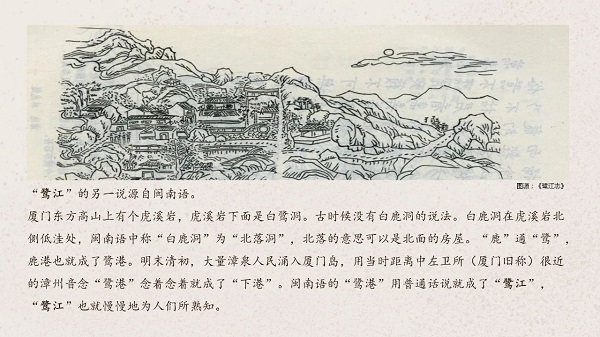 图源：《鹭江志》
“鹭江”的另一说源自闽南语。
厦门东方高山上有个虎溪岩，虎溪岩下面是白鹭洞。古时候没有白鹿洞的说法。白鹿洞在虎溪岩北
侧低洼处，闽南语中称“白鹿洞”为“北落洞”，北落的意思可以是北面的房屋。“鹿”通“鹭”，
鹿港也就成了鹭港。明末清初，大量漳泉人民涌入厦门岛，用当时距离中左卫所（厦门旧称）很近
的漳州音念“鹭港”念着念着就成了“下港”。闽南语的“鹭港”用普通话说就成了“鹭江”，
“鹭江”也就慢慢地为人们所熟知。